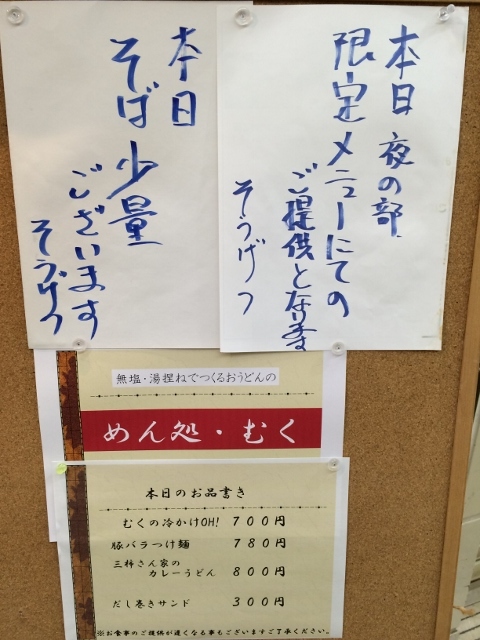 本日 夜の部
限定メニューにての
ご提供となります
そうげつ
本日
そば 少量
ございます
そうげつ
無塩・湯捏ねでつくるおうどんの
めん処・むく
本日のお品書き
むくの冷かけOH! 700円
豚バラつけ麺 780円
三柿さん家の
カレーうどん 800円
だし巻きサンド 300円
※お食事のご提供が遅くなる事もございますご了承ください。